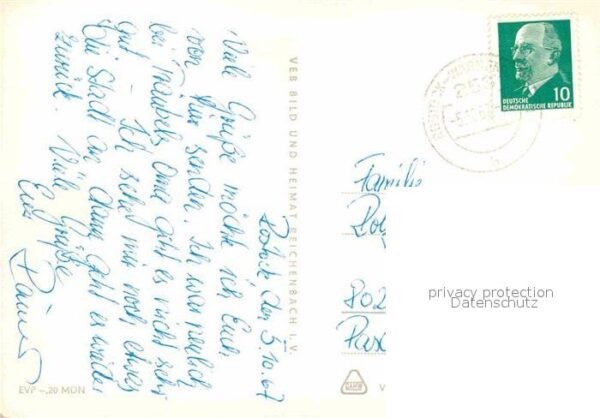 Rostock, den 5.10.67
Viele Grüße möchte ich Euch
von hier senden. Ich war neulich
bei Oma geht es nicht sehr
gut – Ich sehe mir noch etwas
die Stadt an, dann geht es wieder
zurück. Viele Grüße
Euer
Rainer
VEB BILD UND HEIMAT REICHENBACH I. V.
EVP –,20 MDN
DEUTSCHE
DEMOKRATISCHE REPUBLIK
10
Familie
802
privacy protection
Datenschutz
V